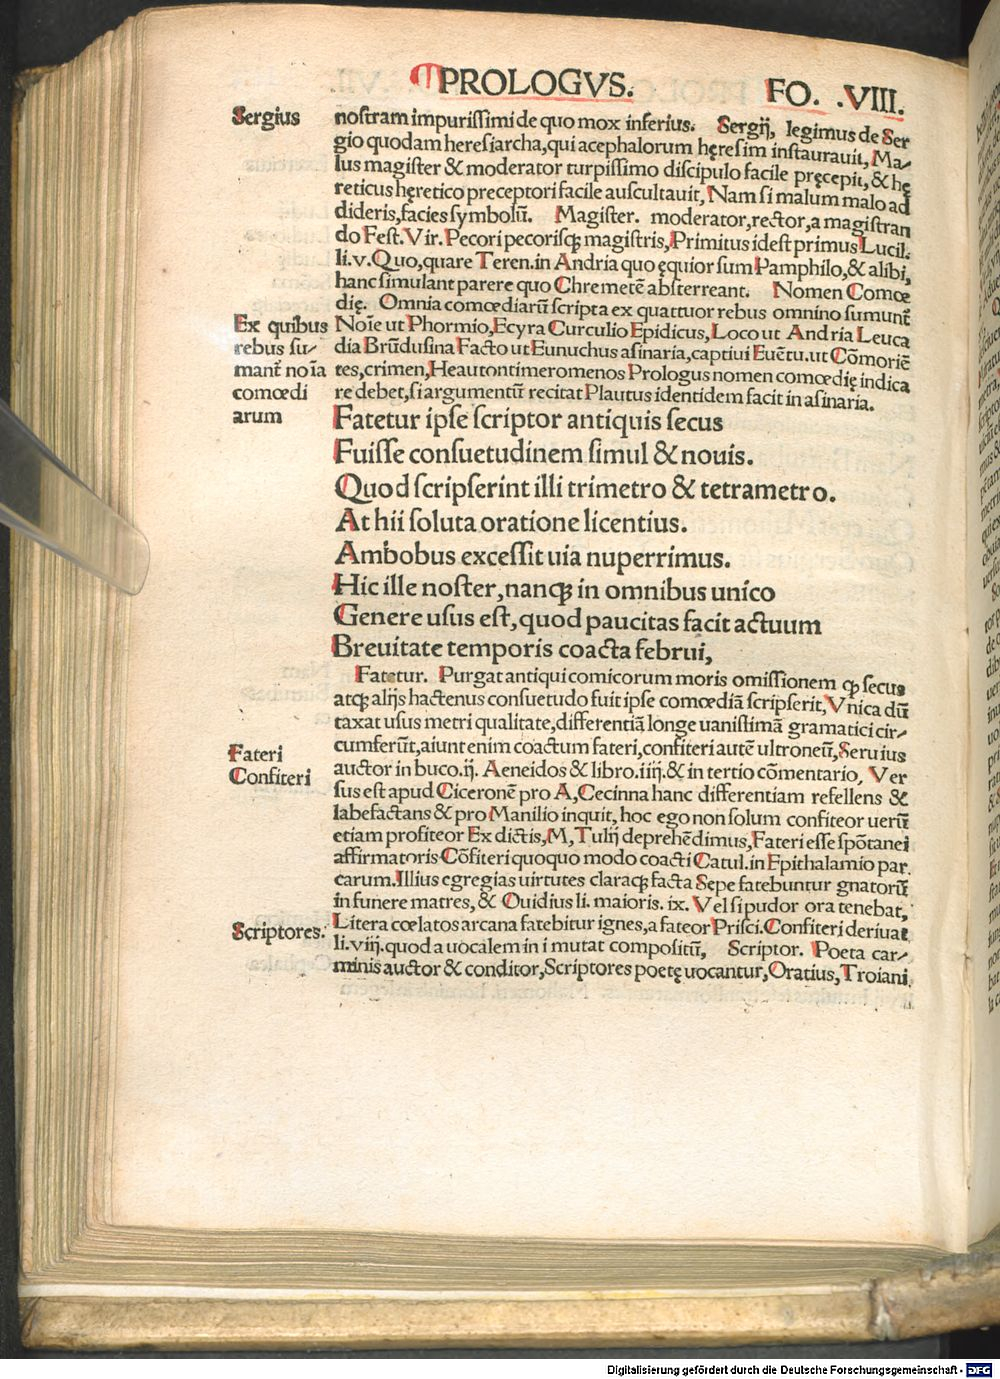 PROLOGVS.
FO. .VIII.
Sergius
nostram impurissimi de quo mox inferius. Sergij, legimus de Ser
gio quodam heresiarcha, qui acephalorum hęresim instaurauit, Ma-
lus magister & moderator turpissimo discipulo facile pręcepit, & hę
reticus hęretico preceptori facile auscultauit, Nam si malum malo ad
dideris, facies symbolū. Magister. moderator, rector, a magistran
do Fest. Vir. Pecori pecorisq; magistris, Primitus idest primus Lucil.
li. v. Quo, quare Teren. in Andria quo ęquior sum Pamphilo, & alibi,
hanc simulant parere quo Chremetē absterreant. Nomen Comœ
dię. Omnia comœdiarū scripta ex quattuor rebus omnino sumunt̄
Ex quibus
rebus su-
mant̄ noīa
comœdi
arum
Noīe ut Phormio, Ecyra Curculio Epidicus, Loco ut Andria Leuca
dia Brūdusina Facto ut Eunuchus asinaria, captiui Euētu. ut Cōmoriē
tes, crimen, Heautontimeromenos Prologus nomen comœdię indica
re debet, si argumentū recitat Plautus identidem facit in asinaria.
Fatetur ipse scriptor antiquis secus
Fuisse consuetudinem simul & nouis.
Quod scripserint illi trimetro & tetrametro.
At hii soluta oratione licentius.
Ambobus excessit uia nuperrimus.
Hic ille noster, nanq; in omnibus unico
Genere usus est, quod paucitas facit actuum
Breuitate temporis coacta februi,
Fatetur. Purgat antiqui comicorum moris omissionem ꝙ secus
atq; alijs hactenus consuetudo fuit ipse comœdiā scripserit, Vnica dū
taxat usus metri qualitate, differentiā longe uanissimā gramatici cir-
cumferūt, aiunt enim coactum fateri, confiteri autē ultroneū, Seruius
Fateri
Confiteri
auctor in buco. ij. Aeneidos & libro. iiij. & in tertio cōmentario, Ver
sus est apud Ciceronē pro A, Cecinna hanc differentiam refellens &
labefactans & pro Manilio inquit, hoc ego non solum confiteor uerū
etiam profiteor Ex dictis, M, Tulij deprehēdimus, Fateri esse spōtanei
affirmatoris Cōfiteri quoquo modo coacti Catul. in Epithalamio par
carum. Illius egregias uirtutes claraq; facta Sepe fatebuntur gnatorū
in funere matres, & Ouidius li. maioris. ix. Vel si pudor ora tenebat,
Scriptores.
Litera cœlatos arcana fatebitur ignes, a fateor Prisci. Confiteri deriuat
li. viij. quod a uocalem in i mutat compositū, Scriptor. Poeta car-
minis auctor & conditor, Scriptores poetę uocantur, Oratius, Troiani
Digitalisierung gefördert durch die Deutsche Forschungsgemeinschaft - DFG